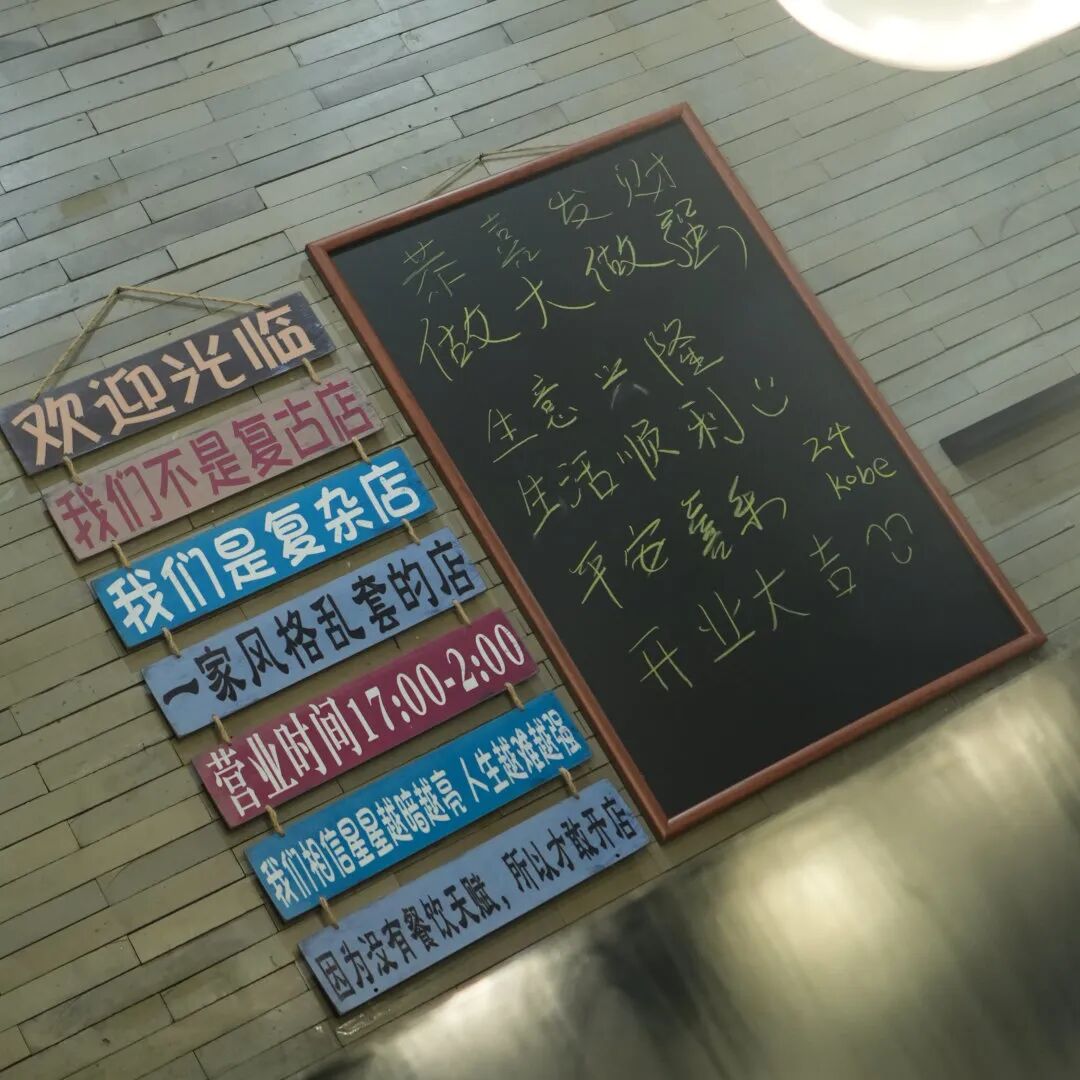 欢迎光临
我们不是复古店
我们是复杂店
一家风格乱套的店
营业时间17:00-2:00
我们相信星星越暗越亮 人生越难越强
因为没有餐饮天赋，所以才敢开店
恭喜发财
做大做强
生意兴隆
生活顺利
平安喜乐
24
kobe
开业大吉